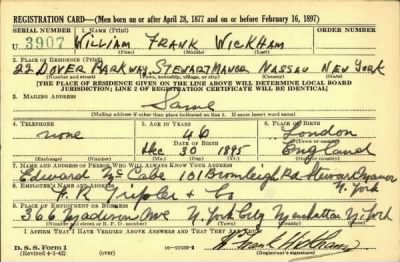 REGISTRATION CARD—(Men born on or after April 28, 1877 and on or before February 16, 1897)
SERIAL NUMBER 1. NAME (Print) ORDER NUMBER
U 3907 WILLIAM FRANK WICKHAM
(First) (Middle) (Last)
2. PLACE OF RESIDENCE (Print)
22 DOVER PARKWAY, STEWART MANOR NASSAU NEW YORK
(Number and street) (Town, township, village, or city) (County) (State)
[THE PLACE OF RESIDENCE GIVEN ON THE LINE ABOVE WILL DETERMINE LOCAL BOARD
JURISDICTION; LINE 2 OF REGISTRATION CERTIFICATE WILL BE IDENTICAL]
3. MAILING ADDRESS
Same
[Mailing address if other than place indicated on line 2. If same insert word same]
4. TELEPHONE 5. AGE IN YEARS 6. PLACE OF BIRTH
none 46 London
DATE OF BIRTH (Town or county)
Dec 30 1895 England
(Exchange) (Number) (Mo.) (Day) (Yr.) (State or country)
7. NAME AND ADDRESS OF PERSON WHO WILL ALWAYS KNOW YOUR ADDRESS
Edward McCabe 101 Bromleigh Rd Steward Manor
N. York
8. EMPLOYER'S NAME AND ADDRESS
F. R. Tripler & Co
9. PLACE OF EMPLOYMENT OR BUSINESS
366 Madison Ave N. York City Manhattan N. York
(Number and street or R. F. D. number) (Town) (County) (State)
I AFFIRM THAT I HAVE VERIFIED ABOVE ANSWERS AND THAT THEY ARE TRUE.
W Frank Wickham
D. S. S. Form 1
(Revised 4-1-42) (over) (Registrant's signature)